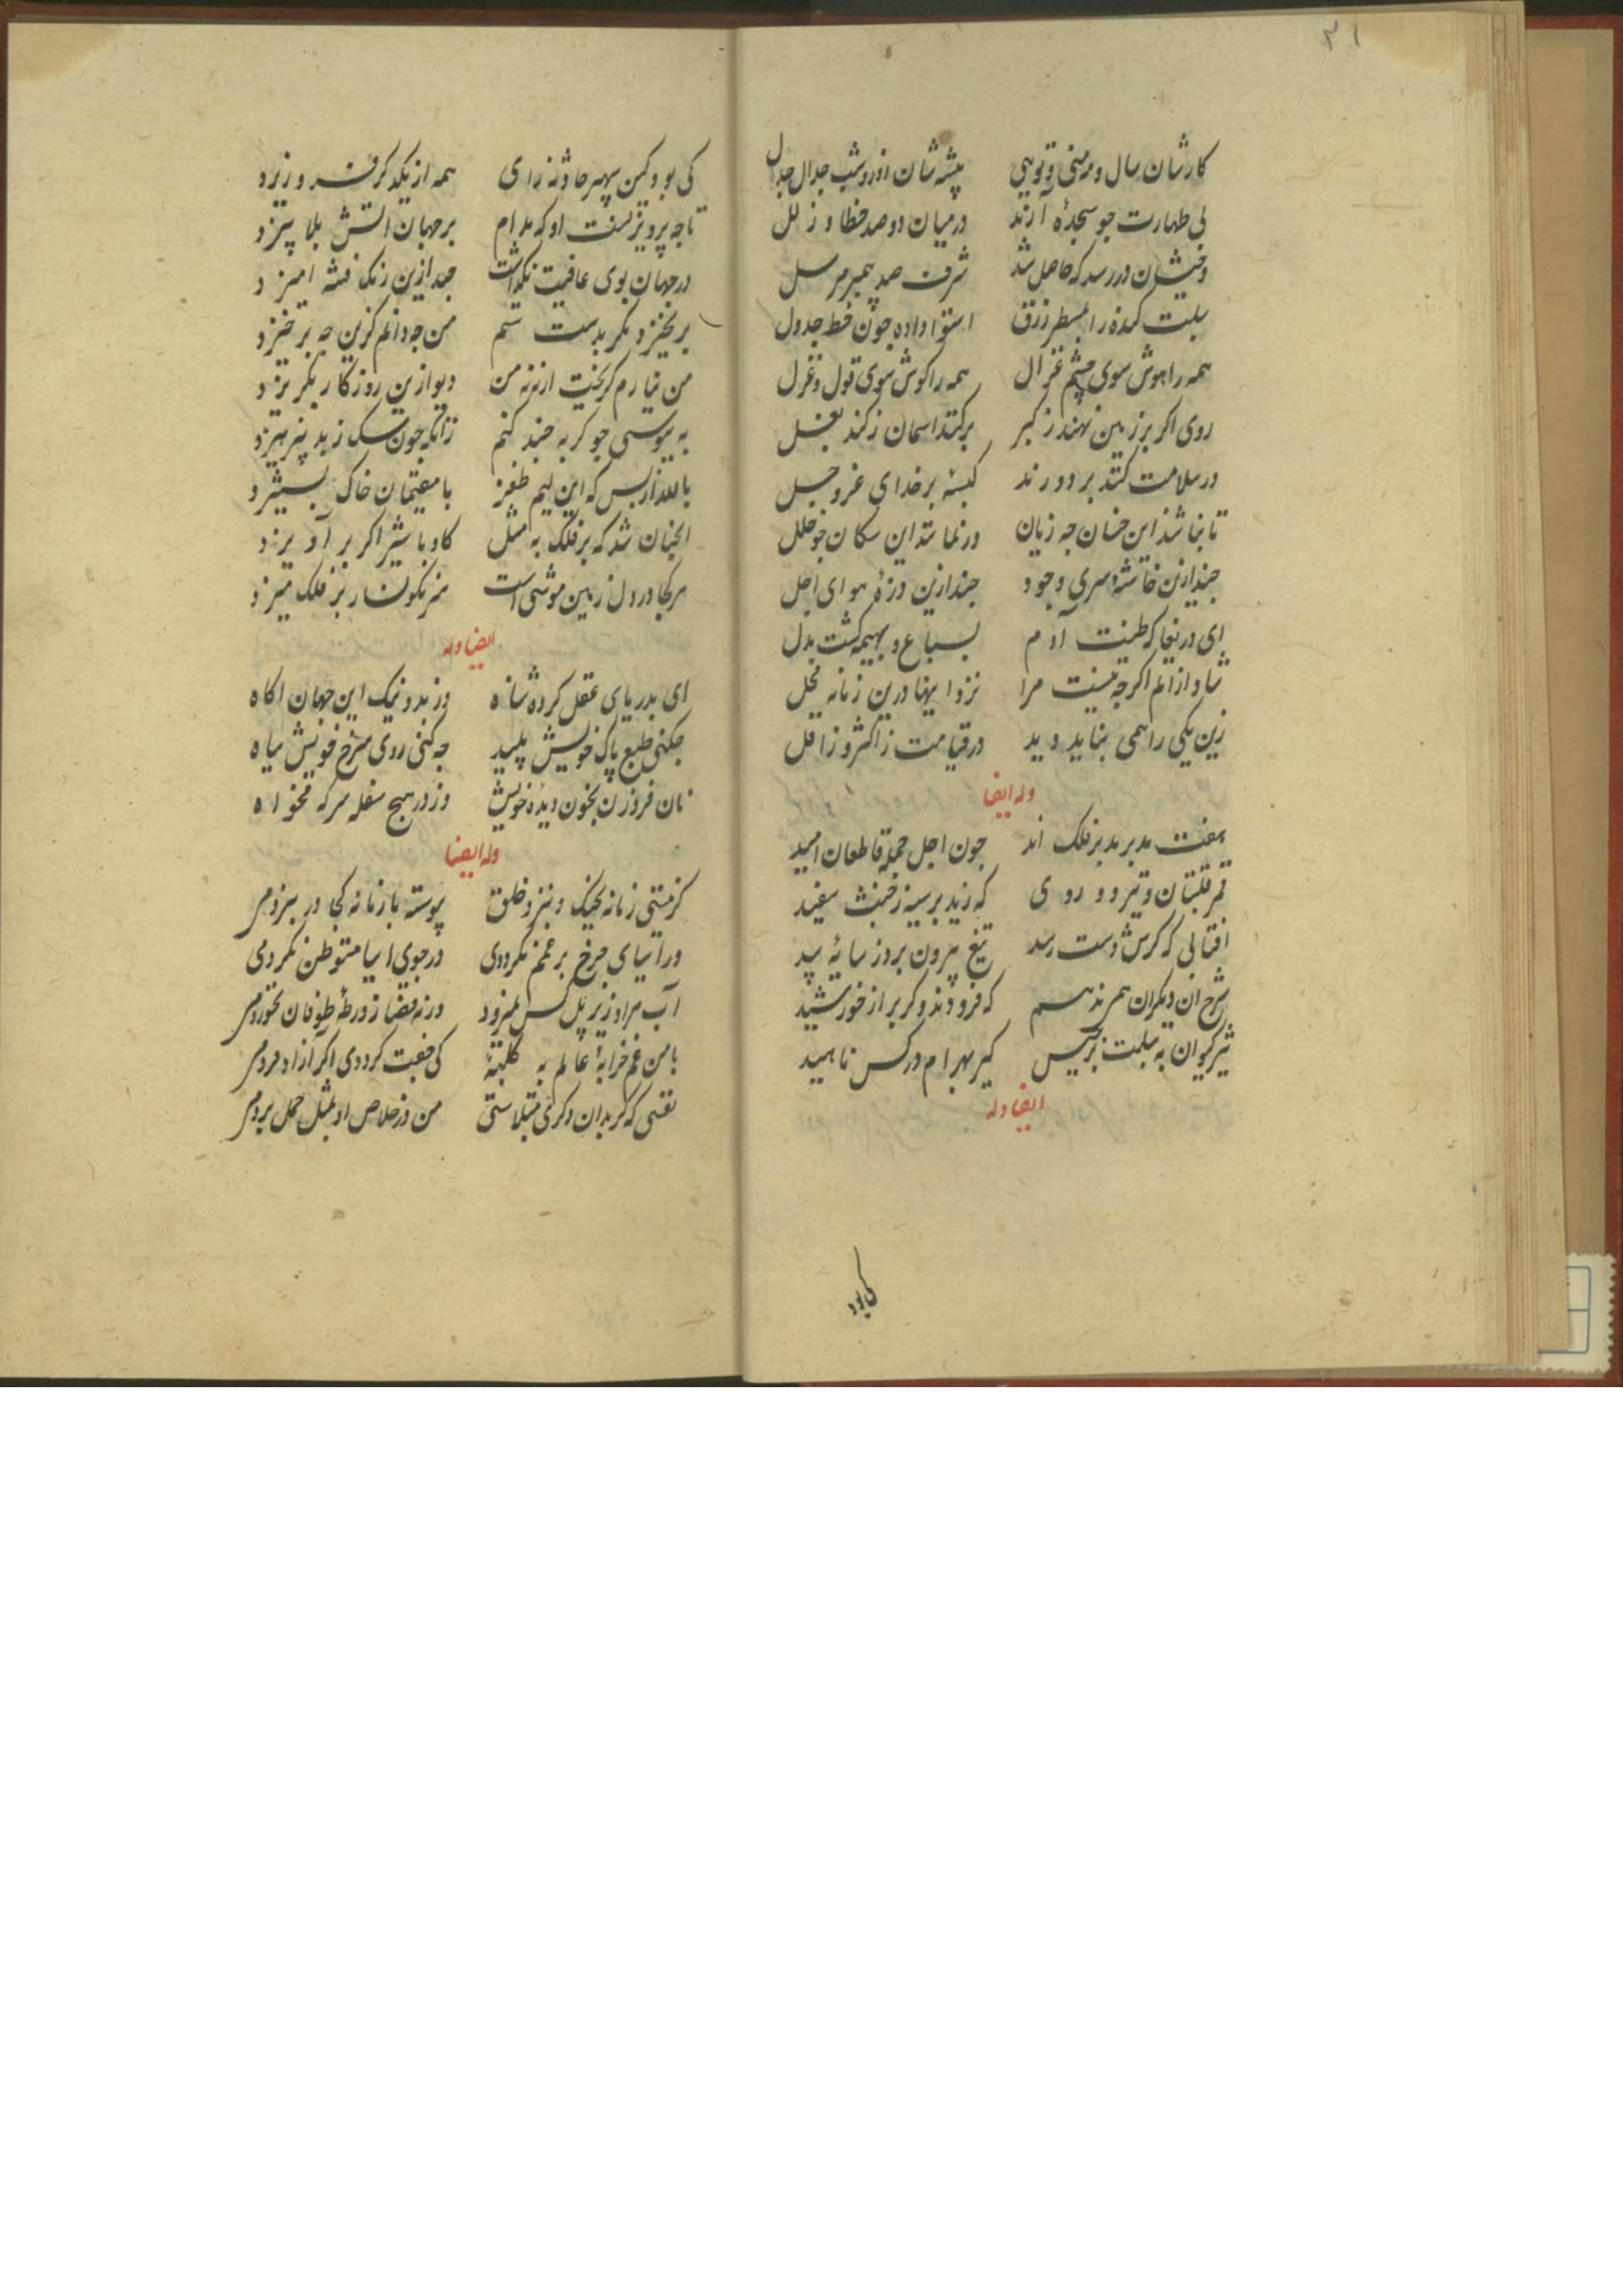 ۳۱
کارشان سال و مه منی و تویی پیشه شان روز و شب جدال جدل
بی طهارت جو سجدهٔ آرند در میان دو صد خطا و زلل
وخیشان در رسد که حاصل شد شرف صد پیمبر مرسل
سبلت کنده را بمسطر زرق استوا داده جون خط جدول
همه را هوش سوی چشم غزال همه را کوش سوی قول و غزل
روی اکر بر زمین نهند ز کبر برکند اسمان ز کند بغل
در سلامت کنند بر دو رند کیسهٔ بر خدای عز و جل
تا نباشذ این خسان جه زیان ور نماند این سکان جو خلل
جند ازین خانه سری وجود جند ازین دزهٔ هوای اجل
ای دریغا که طینت آدم بسباع و بهیمه کشت بدل
شاد ازانم اکر جه نیست مرا نزد اینها درین زمانه محل
زین یکی را همی نباید دید در قیامت ز اکثر و ز اقل
وله ایضا
هفت مدبر مدبر فلک اند جون اجل جمله قاطعان امید
قمر قلتبان و تیر دو روی که زند بر سینه زخمث سفید
افتابی که کرش دست رسد تیغ بیرون بروز سایهٔ بید
شرح ان دیکران همی ندهم که فرودند و کر بر از خورشید
تیر کیوان به سبلت برجیس کیر بهرام در کس ناهید
ایضا وله
کی بود
کی بود کین سپهر حادثه زای همه از یکدکر فرو ریزد
تا جه پرویزنست او که مدام بر جهان اتش بلا بیزد
در جهان بوی عافیت نکذاشت جند ازین رنک فتنه امیزد
بر نخیزد مکر بدست ستم من جه دانم کزین جه بر خیزد
من نیارم کریخت ازنه من دیو ازین روزکار بکریزد
به بیوسی جو کربه جند کنم زانکه جون سک ز بد بپرهیزد
با لله از بس که این لیم ظفر با مقیمان خاک بستیزد
انجنان شد که بر فلک به مثل کاو با شیر اکر بر آویزد
هر کجا در دل زمین موشی است سرنکونسار بر فلک میزد
ایضا وله
ای بدریای عقل کرده شناه وز بد و نیک این جهان اکاه
جکنی طبع پاک خویش پلید جه کنی روی سرخ خویش سیاه
نان فرو زن بخون دیدهٔ خویش وز در هیچ سفله سرکه مخواه
وله ایضا
کر نیستی زمانه بجنک و نبرد خلق پیوسته با زمانه کجا در نبردمی
ور اسیای جرخ بر غمم نکرددی در جوی اسیا متوطن نکردمی
آب مرا و زیر پل کس نمیرود ورنه قضا ز ورطهٔ طوفان نخوردمی
با من غم خرابهٔ عالم به کلبهٔ کی جفت کرددی اکر آزاد مردمی
نفسی که کر بدان دکری مبتلاستی من در خلاص او بمثل حمل بردمی